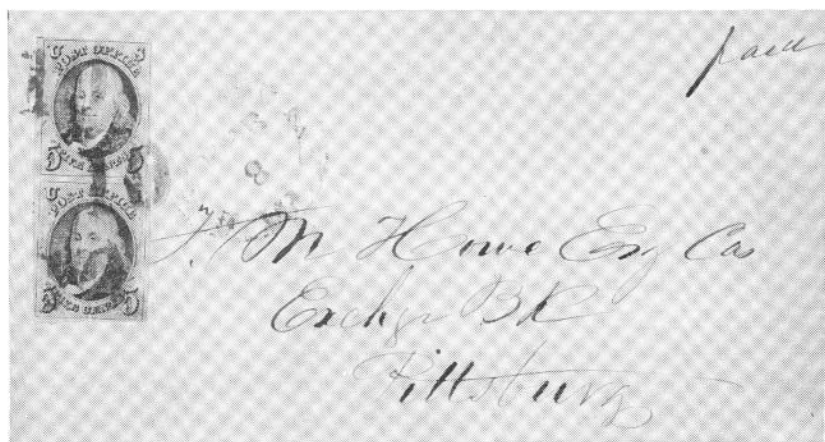 paid
U S
POST OFFICE
FIVE CENTS
5 5
U S
POST OFFICE
FIVE CENTS
5 5
8
T. M Howe Esq Cas
Exchge BK
Pittsburg